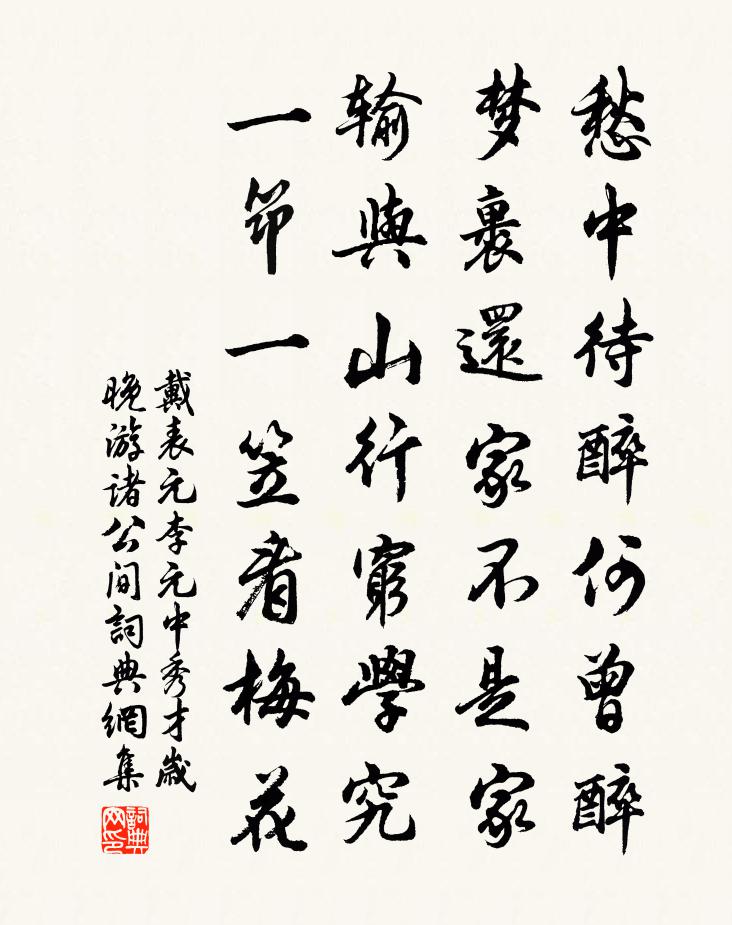 愁中待醉何曾醉
梦裏還家不是家
输與山行窮學究
一笻一笠看梅花
戴表元李元中秀才歲
晚游诸公间詞典網集
詞典网印